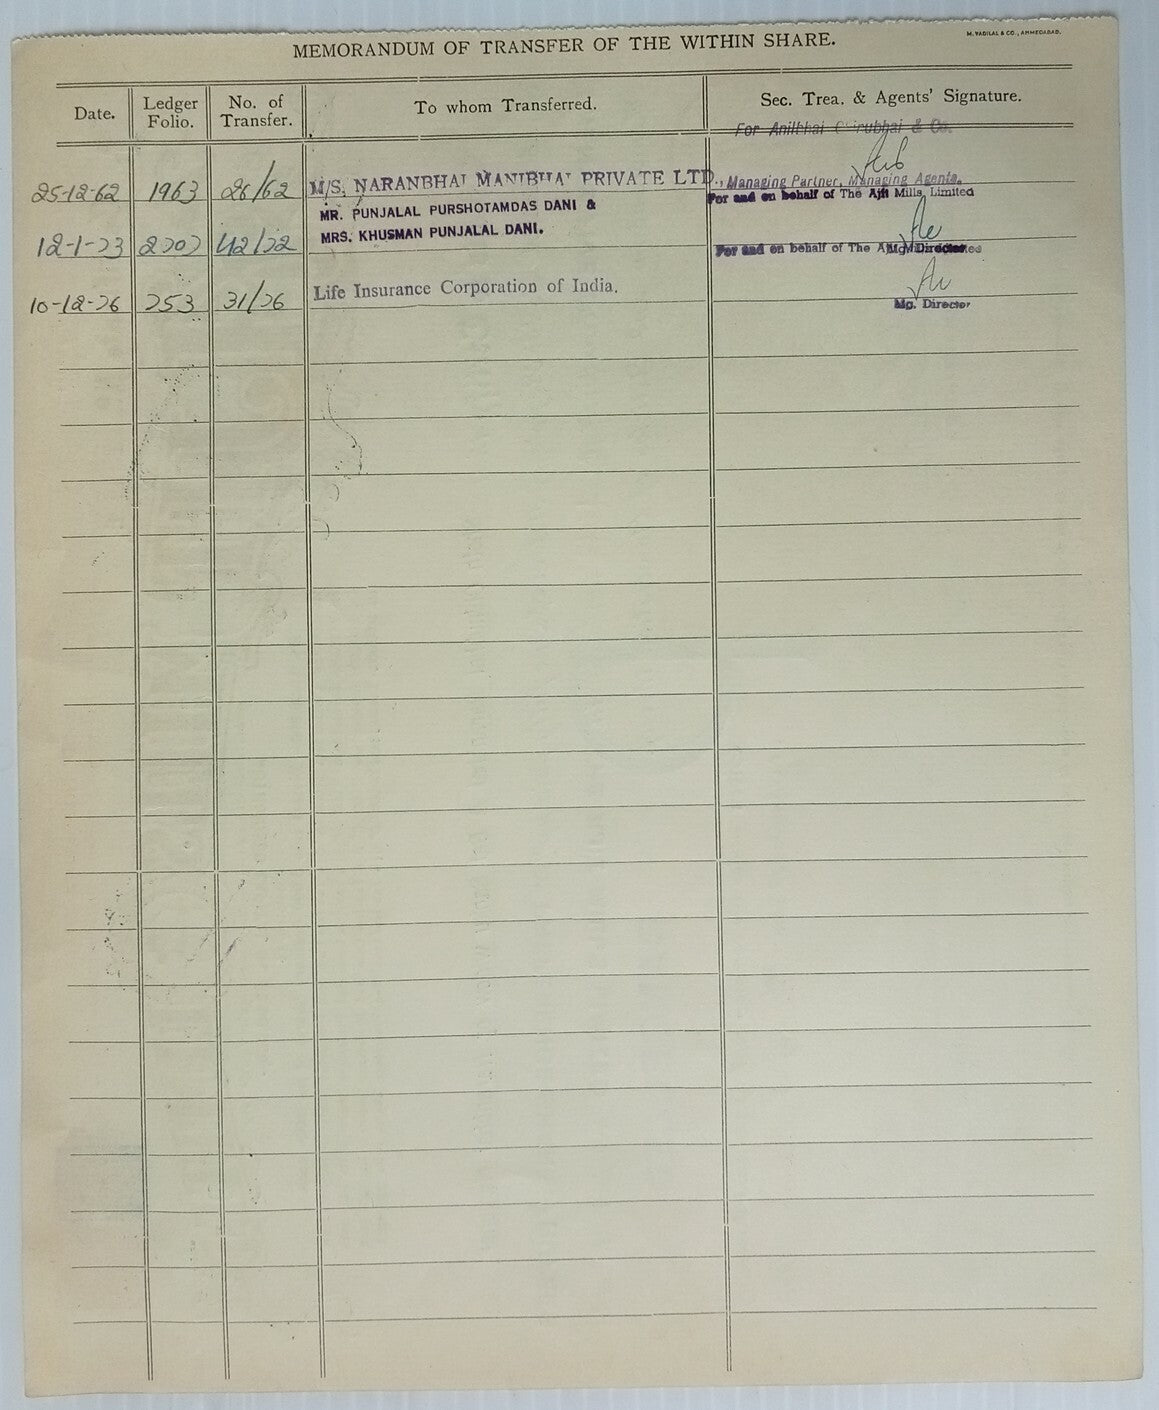 M. VADILAL & CO., AHMEDABAD.
MEMORANDUM OF TRANSFER OF THE WITHIN SHARE.
Date. Ledger Folio. No. of Transfer. To whom Transferred. Sec. Trea. & Agents' Signature.
For Anilbhai & Co.
25-12-62 1963 26/62 M/S. NARANBHAI MANIBHAI PRIVATE LTD., Managing Partner, Managing Agents.
MR. PUNJALAL PURSHOTAMDAS DANI & For and on behalf of The Ajit Mills, Limited
MRS. KHUSMAN PUNJALAL DANI.
12-1-73 2707 42/72 For and on behalf of The Ajit Mg. Director
10-12-76 253 31/76 Life Insurance Corporation of India.
Mg. Director